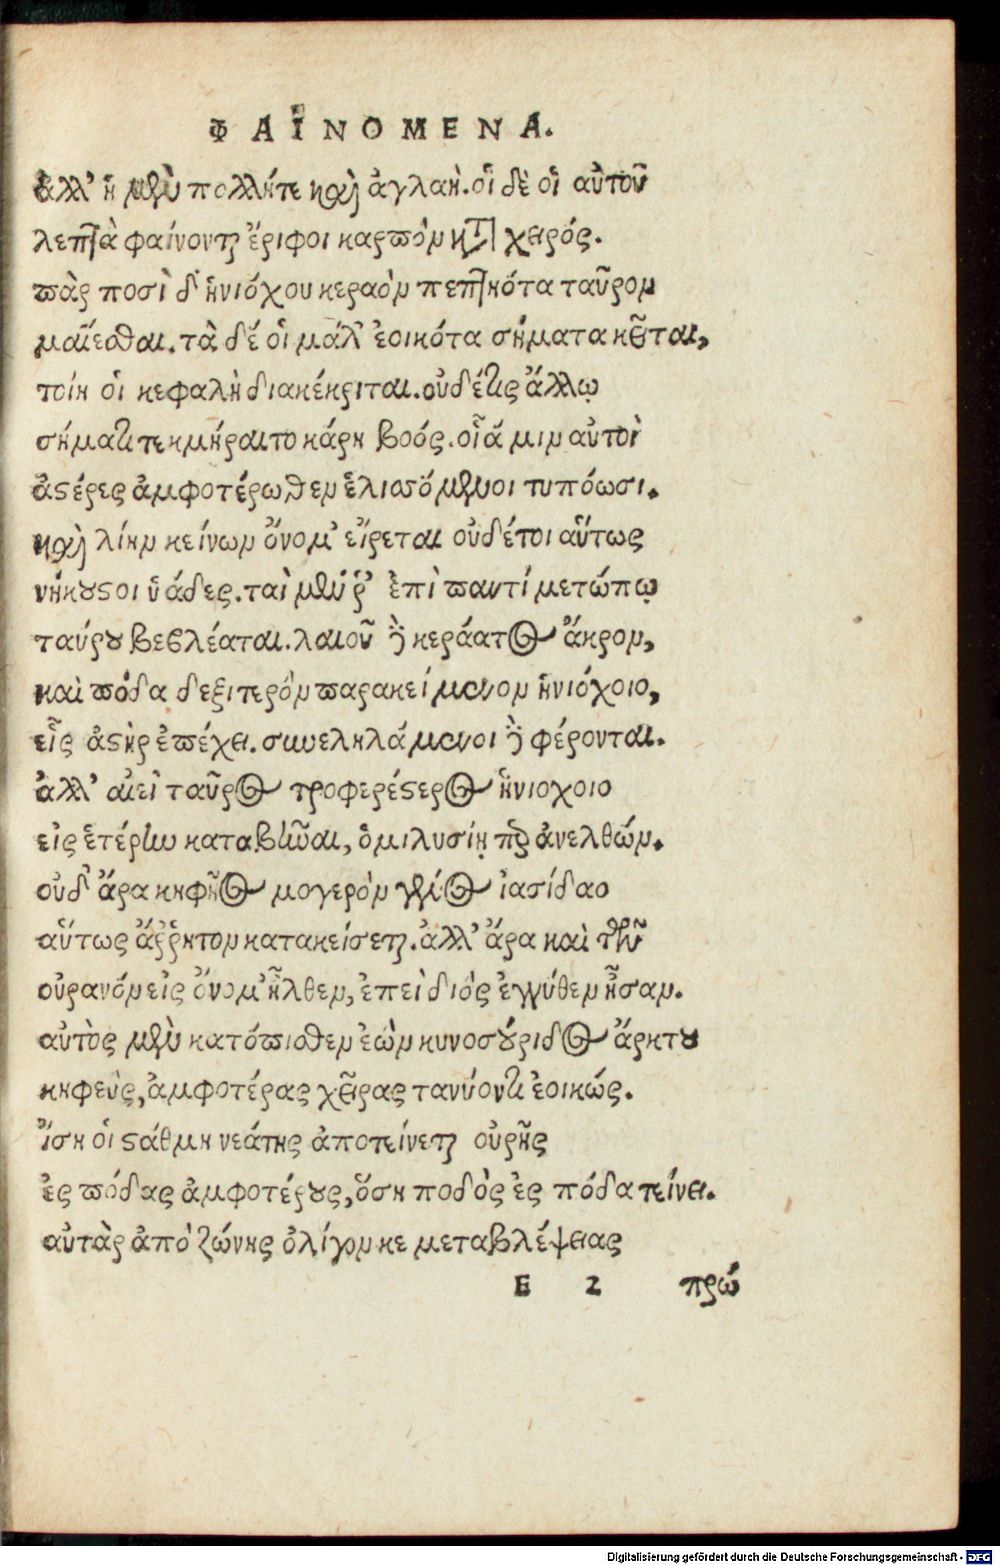 ΦΑΙΝΟΜΕΝΑ.
ἀλλ' ἡ μὲν πολλή τε καὶ ἀγλαή. οἱ δὲ οἱ αὐτοῦ
λεπτὰ φαίνονται ἔριφοι καρπὸν κατὰ χειρός.
πὰρ ποσὶ δ' ἡνιόχου κεραὸν πεπτηκότα ταῦρον
μαίεσθαι. τὰ δέ οἱ μάλ' ἐοικότα σήματα κεῖται,
τοίη οἱ κεφαλὴ διακέκριται. οὐδέ τις ἄλλῳ
σήματι τεκμήραιτο κάρη βοός. οἷά μιν αὐτοὶ
ἀστέρες ἀμφοτέρωθεν ἑλισσόμενοι τυπόωσι.
καὶ λίην κείνων ὄνομ' εἴρεται οὐδέ τοι αὕτως
νήκουστοι ὑάδες. ταὶ μέν ῥ' ἐπὶ παντί μετώπῳ
ταύρου βεβλέαται. λαιοῦ δὲ κεράατος ἄκρον,
καὶ πόδα δεξιτερὸν παρακείμενον ἡνιόχοιο,
εἷς ἀστὴρ ἐπέχει. συνεληλάμενοι δὲ φέρονται.
ἀλλ' αἰεὶ ταῦρος προφερέστερος ἡνιοχοιο
εἰς ἑτέρην καταβῆναι, ὁμιλυσίῃ περ ἀνελθών.
οὐδ' ἄρα κηφῆος μογερὸν γένος ἰασίδαο
αὕτως ἄῤῥητον κατακείσεται. ἀλλ' ἄρα καὶ τῶν
οὐρανὸν εἰς ὄνομ' ἦλθεν, ἐπεὶ διὸς ἐγγύθεν ἦσαν.
αὐτὸς μὲν κατόπισθεν ἐὼν κυνοσούριδος ἄρκτου
κηφεὺς, ἀμφοτέρας χεῖρας τανύοντι ἐοικώς.
ἴση οἱ στάθμη νεάτης ἀποτείνεται οὐρῆς
ἐς πόδας ἀμφοτέρους, ὅση ποδὸς ἐς πόδα τείνει.
αὐτὰρ ἀπὸ ζώνης ὀλίγον κε μεταβλέψειας
E 2 πρώ
Digitalisierung gefördert durch die Deutsche Forschungsgemeinschaft - DFG